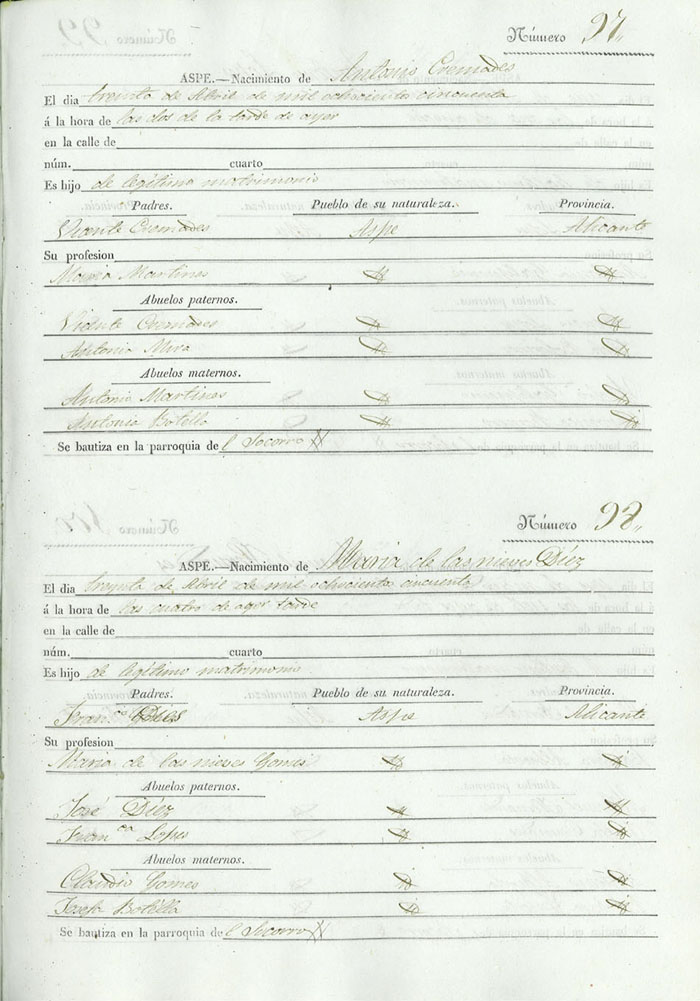 Número 97,,
ASPE.—Nacimiento de Antonio Cremades
El dia treynta de Abril de mil ochociento cincuenta
á la hora de las dos de la tarde de ayer
en la calle de
núm. cuarto
Es hijo de legítimo matrimonio
Padres. Pueblo de su naturaleza. Provincia.
Vicente Cremades Aspe Alicante
Su profesion
Maria Martines
Abuelos paternos.
Vicente Cremades
Antonia Mira
Abuelos maternos.
Antonio Martines
Antonia Botella
Se bautiza en la parroquia de l Socorro
Número 98,,
ASPE.—Nacimiento de Maria de las nieves Díez
El dia treynta de Abril de mil ochociento cincuenta
á la hora de las cuatro de ayer tarde
en la calle de
núm. cuarto
Es hijo de legítimo matrimonio
Padres. Pueblo de su naturaleza. Provincia.
Fran.co Díes Aspe Alicante
Su profesion
Maria de las nieves Gomes
Abuelos paternos.
José Díez
Fran.ca Lopes
Abuelos maternos.
Claudio Gomes
Josefa Botélla
Se bautiza en la parroquia de l Socorro